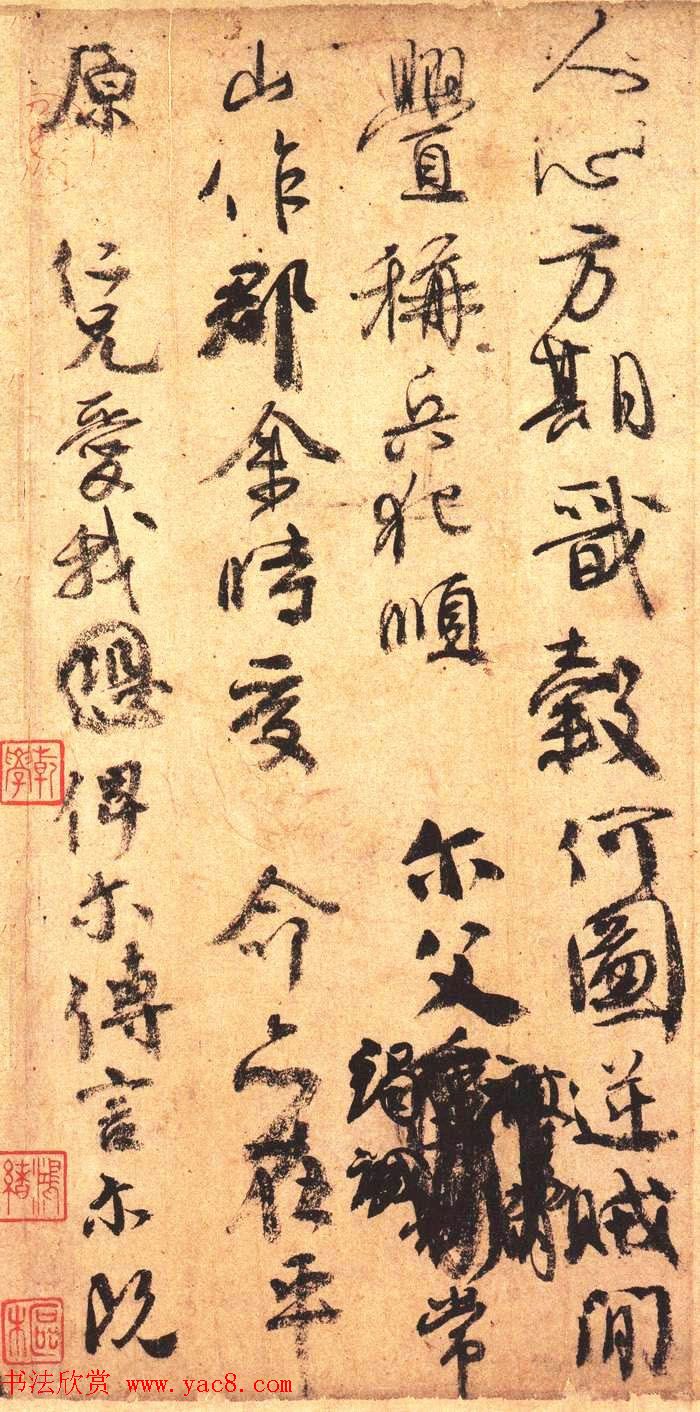 人心方期戩穀何圖逆賊閒
釁稱兵犯順 尔父竭誠常
山作郡余時受 命亦在平
原 仁兄愛我俾尔傳言尔既
乾學
鴻緒
书法欣赏 www.yac8.com